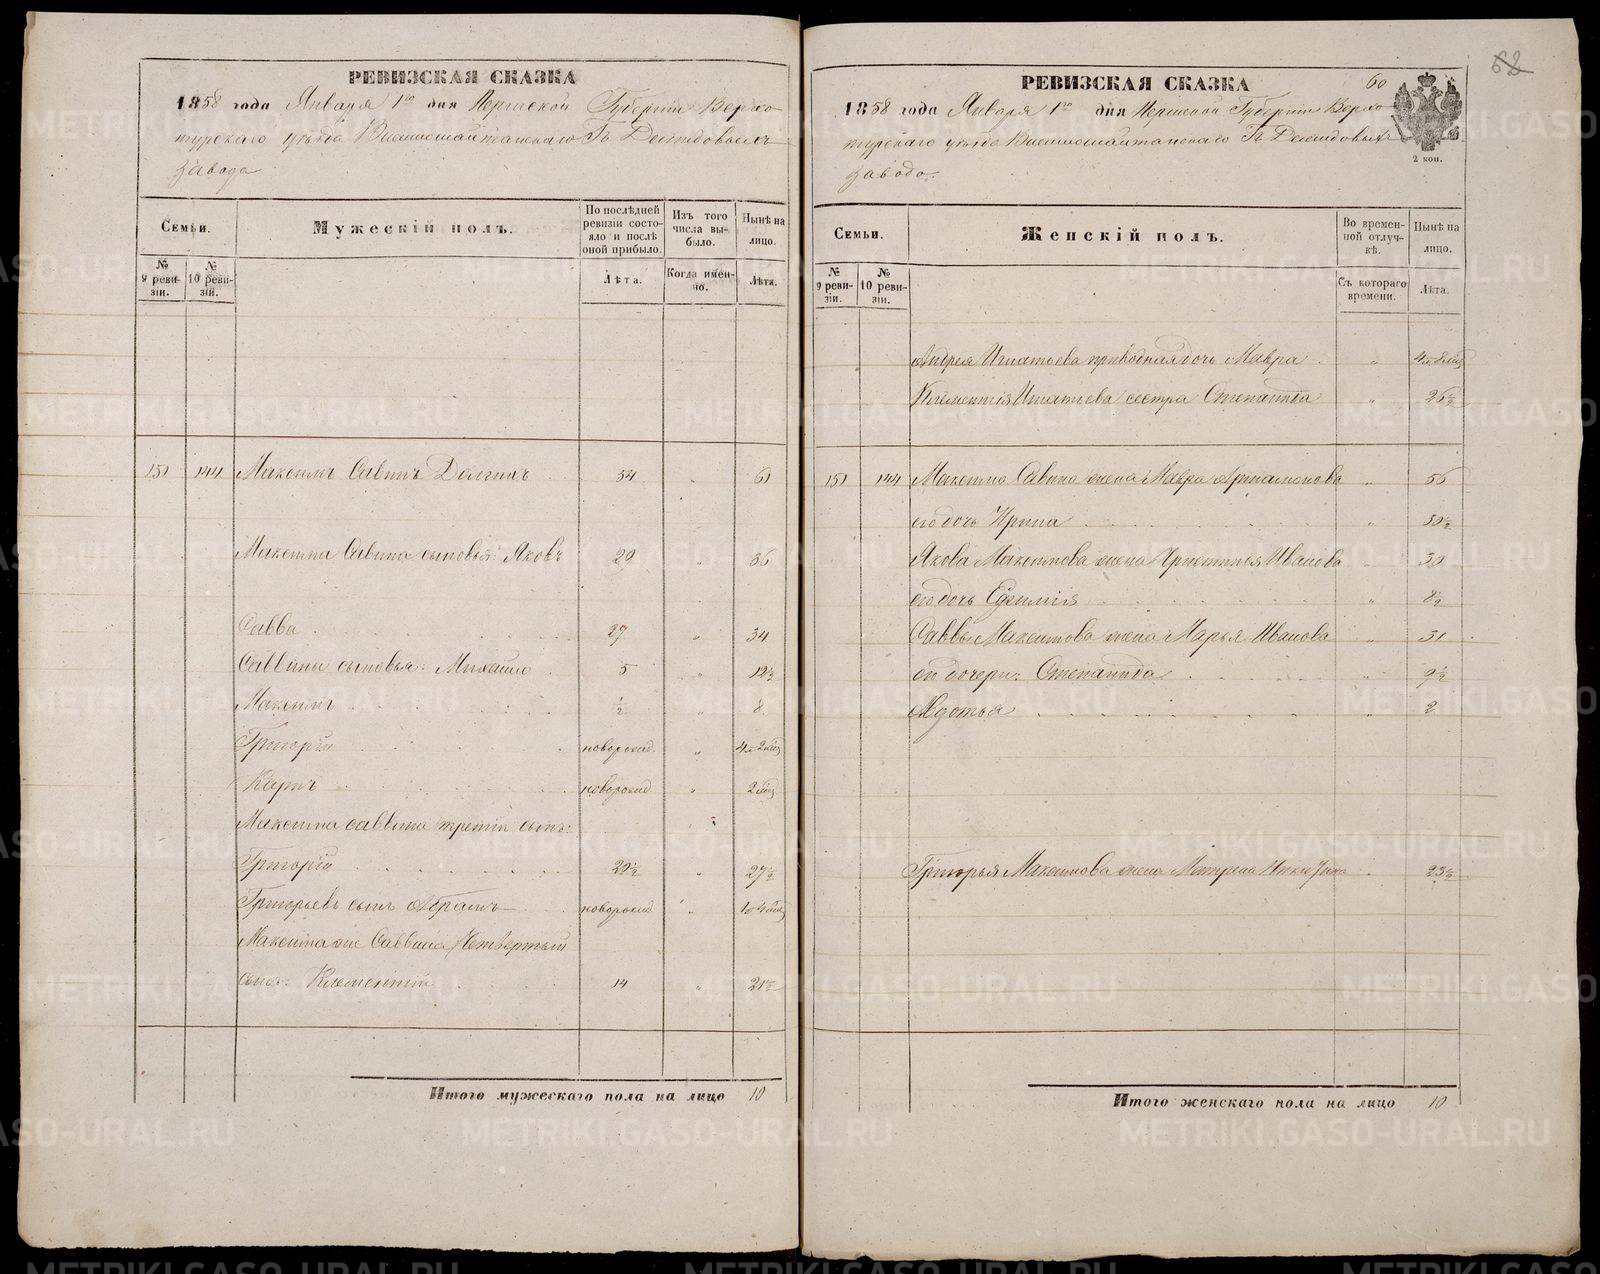 РЕВИЗСКАЯ СКАЗКА
1858 года Января 1го дня Пермской Губернии Верхо
турскаго уѣзда Висимошайтанскаго Гъ Демидовыхъ
завода
Семьи.
Мужескій полъ.
По послѣдней ревизіи состояло и послѣ оной прибыло.
Изъ того числа выбыло.
Нынѣ на лицо.
№ 9 ревизіи.
№ 10 ревизіи.
Лѣта.
Когда именно.
Лѣта.
151 144 Максимъ Савинъ Долгихъ 54 " 61
Максима Савина сыновья: Яковъ 29 " 36
Савва 27 " 34
Саввины сыновья: Михайло 5 " 12½
Максимъ ½ " 8
Григорій новорожд. " 4 л 2 мѣс
Карпъ новорожд " 2 мѣс
Максима Саввина третій сынъ: "
Григорій 20½ " 27½
Григорьевъ сынъ Абрамъ новорожд " 1 г 4 мѣс
Максима же Саввина Четвертый
сынъ: Климентій 14 " 21½
Итого мужескаго пола на лицо 10
62
РЕВИЗСКАЯ СКАЗКА 60
1858 года Января 1го дня Пермской Губерніи Верхо
турскаго уѣзда Висимошайтанскаго Гъ Демидовыхъ
завода.
2 коп.
Семьи.
Женскій полъ.
Во временной отлучкѣ.
Нынѣ на лицо.
№ 9 ревизіи.
№ 10 ревизіи.
Съ котораго времени.
Лѣта.
Андрея Игнатьева приводная дочь Мавра " 4 л 8 мѣс
Климентія Игнатьева сестра Степанида " 26½
151 144 Максима Савина жена Мавра Артамонова " 56
его дочь Ирина " 30½
Якова Максимова жена Христинья Иванова " 30
его дочь Ефимія " 8½
Саввы Максимова жена Марья Иванова " 31
его дочери: Степанида " 9½
Авдотья " 2
Григорья Максимова жена Матрена 23½
Итого женскаго пола на лицо 10
METRIKI.GASO-URAL.RU